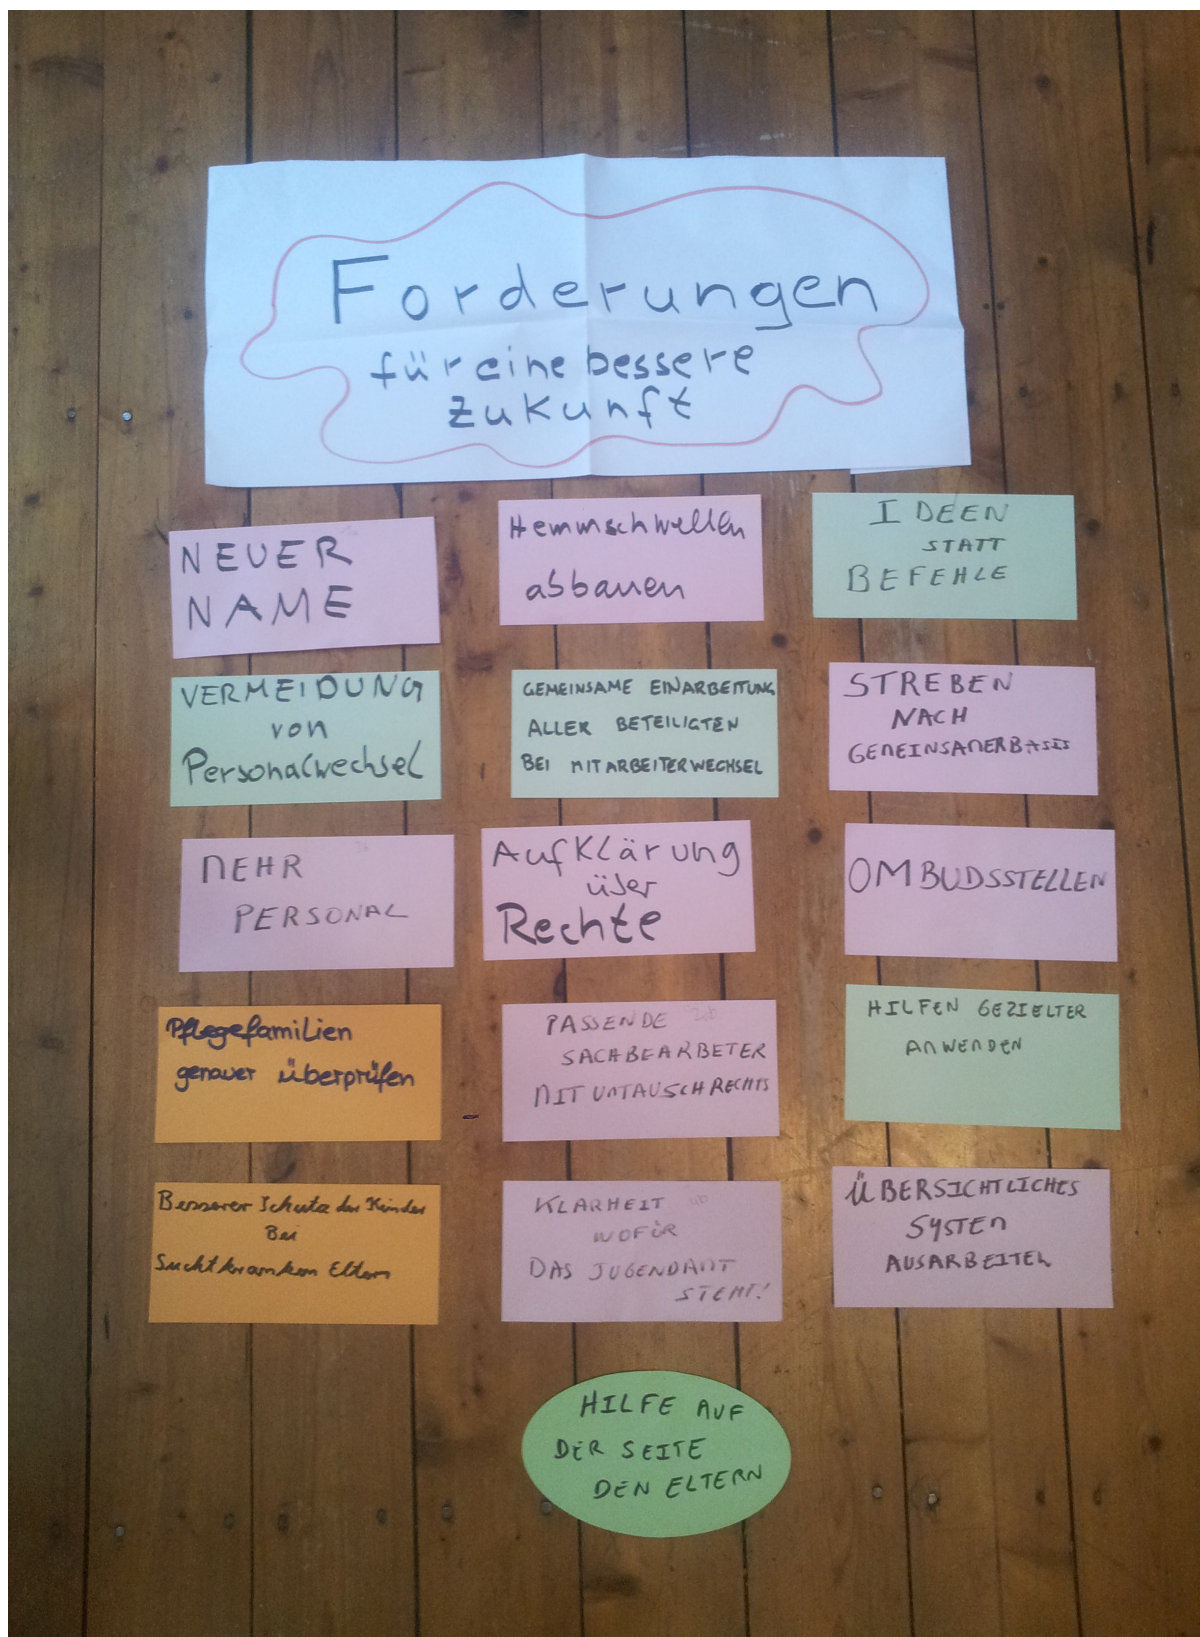 Forderungen
für eine bessere
Zukunft
NEUER
NAME
Hemmschwellen
abbauen
IDEEN
STATT
BEFEHLE
VERMEIDUNG
von
Personalwechsel
GEMEINSAME EINARBEITUNG
ALLER BETEILIGTEN
BEI MITARBEITERWECHSEL
STREBEN
NACH
GEMEINSAMER BASIS
MEHR
PERSONAL
Aufklärung
über
Rechte
OMBUDSSTELLEN
Pflegefamilien
genauer überprüfen
PASSENDE
SACHBEARBETER
MIT UMTAUSCHRECHT
HILFEN GEZIELTER
ANWENDEN
Besserer Schutz der Kinder
Bei
Suchtkranken Eltern
KLARHEIT
WOFÜR
DAS JUGENDAMT
STEHT!
ÜBERSICHTLICHES
SYSTEM
AUSARBEITEN
HILFE AUF
DER SEITE
DEN ELTERN